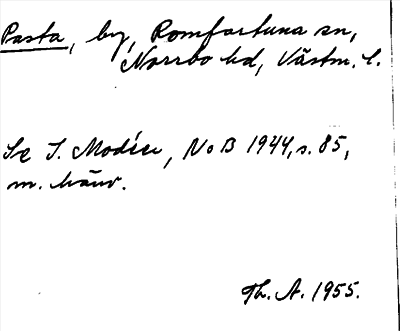 Pasta, by, Romfartuna sn,
Norrbo hd, Västm. l.
Se I. Modéer, NoB 1944, s. 85,
m. hänv.
Th. A. 1955.